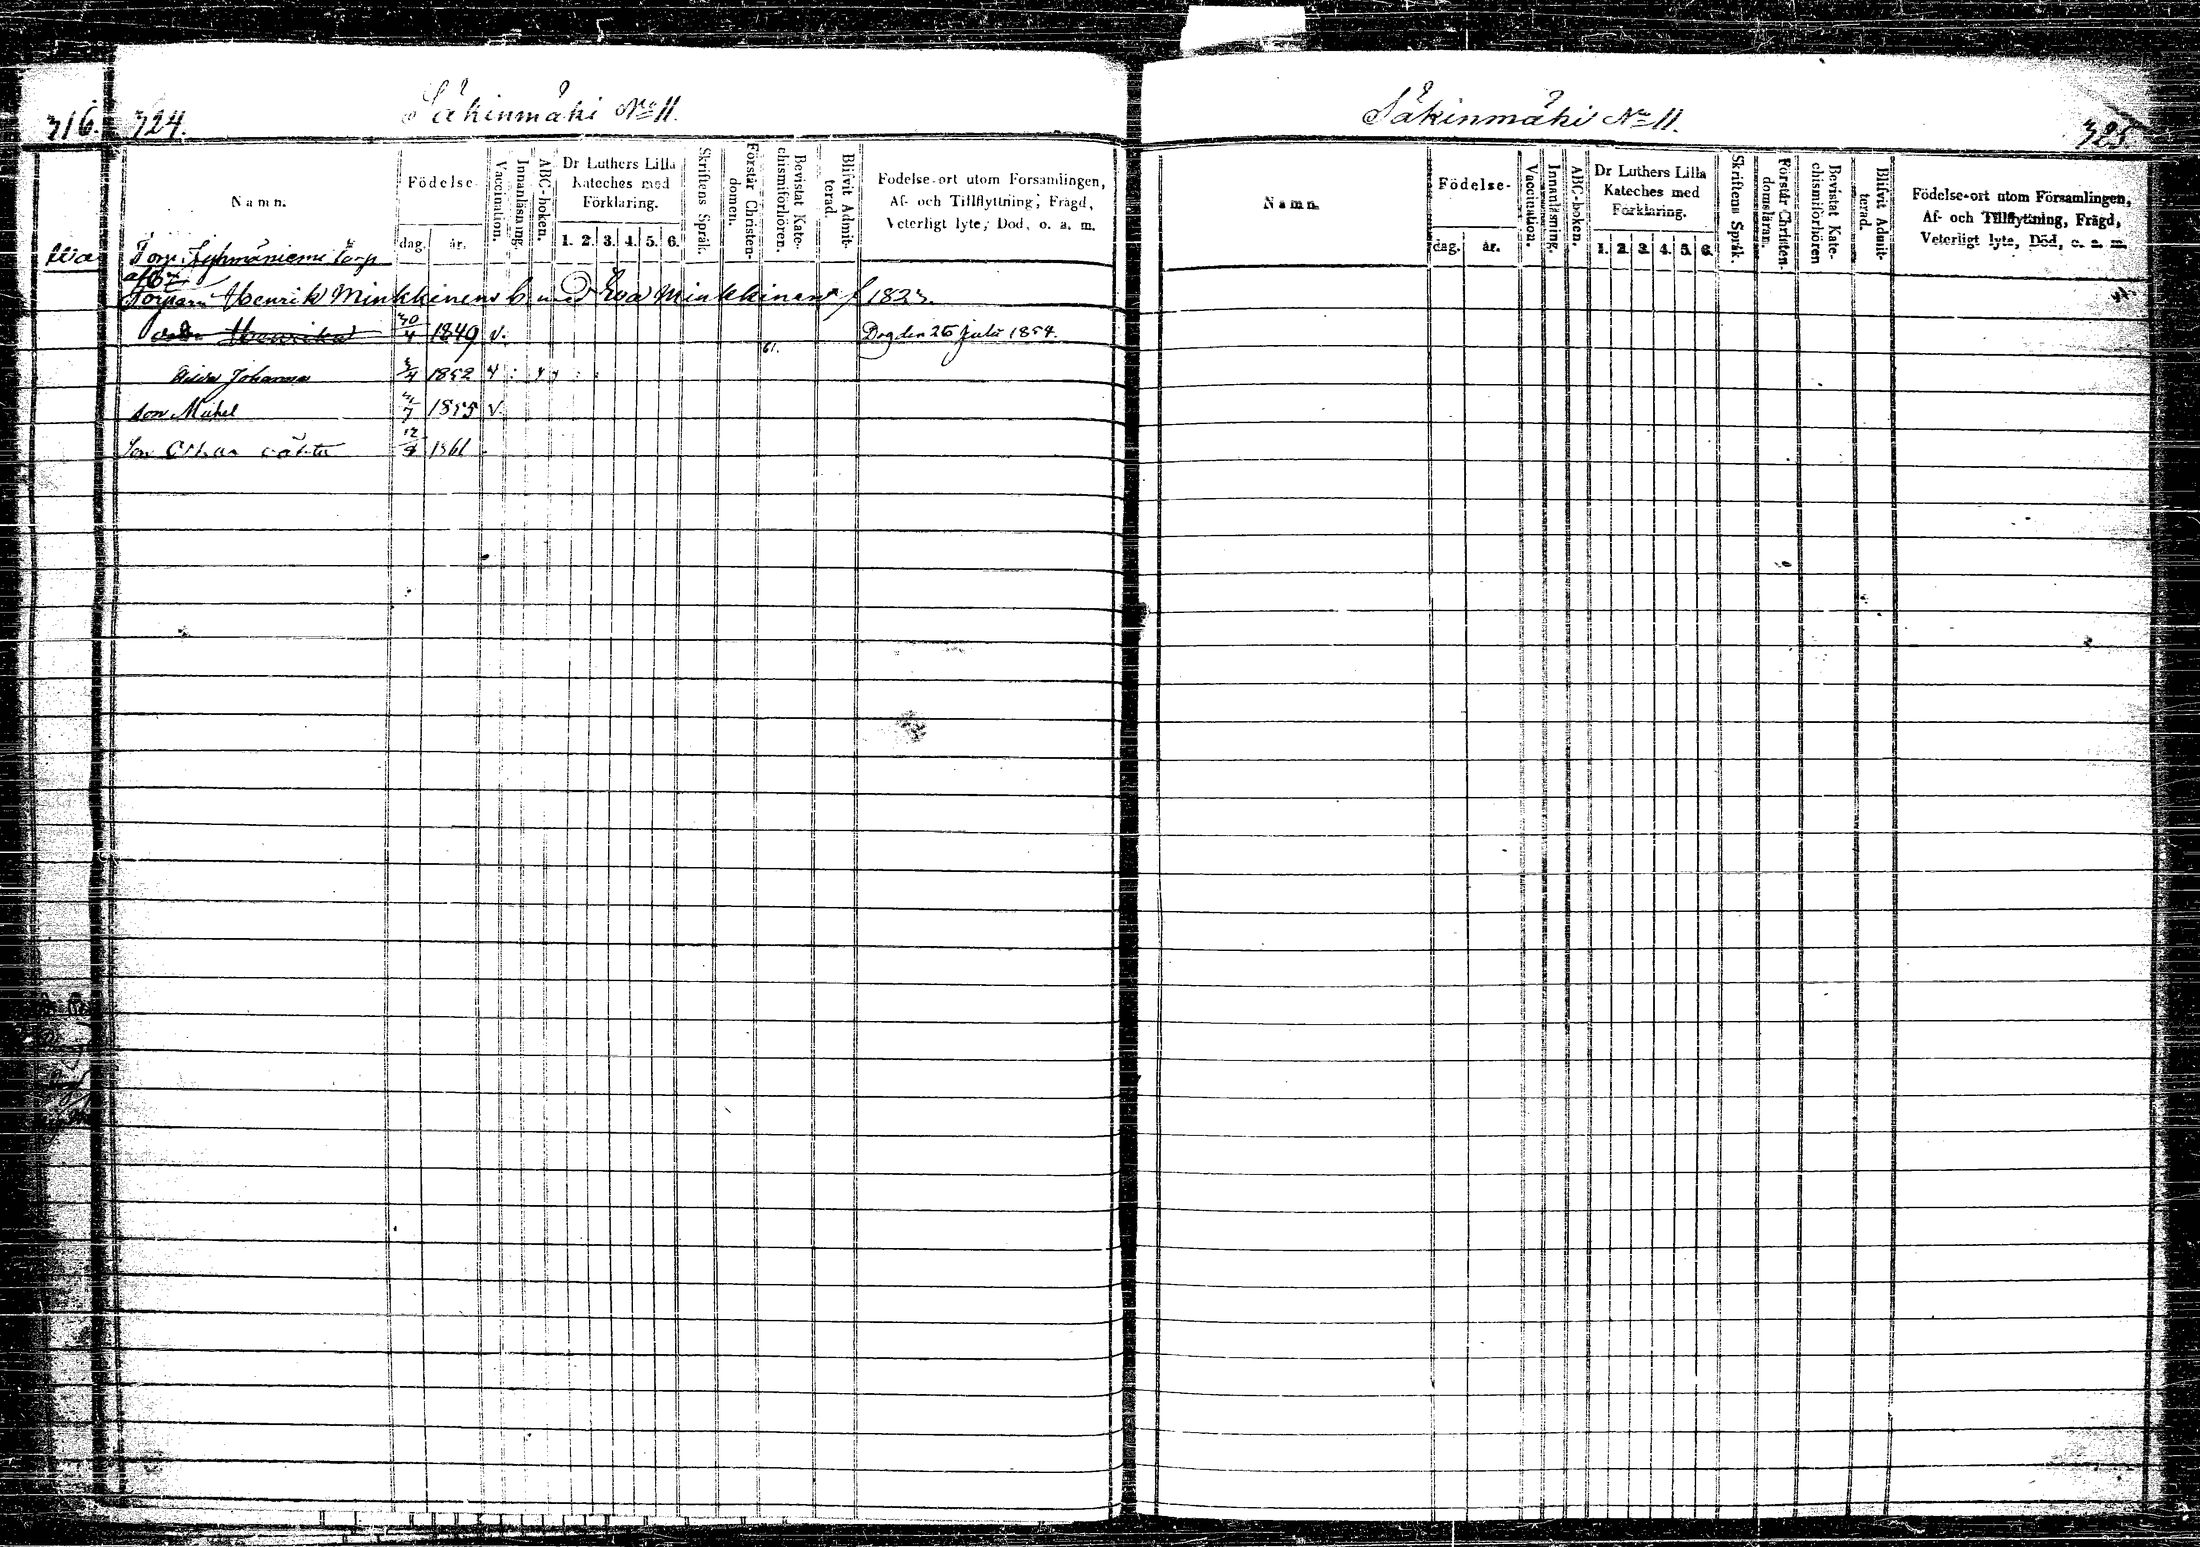 316. 324. Säkinmäki No 11.
Namn.
Födelse-
dag. år.
Vaccination.
Innanläsning.
ABC-boken.
Dr Luthers Lilla
Kateches med
Förklaring.
1. 2. 3. 4. 5. 6.
Skriftens Språk.
Förstår Christen-
domen.
Bevistat Kate-
chismiförhören.
Blifvit Admit-
terad.
Födelse-ort utom Församlingen,
Af- och Tillflyttning, Frägd,
Veterligt lyte, Död, o. a. m.
Torp
Henrik Minkkinens b med Eva Minkkinen f 1823.
Henrika 30/4 1849 v. Dog den 26 Juli 1854.
61.
Johanna 1852
son Michel 1855 v.
Son 12/8 1861
Säkinmäki No 11.
325
Namn.
Födelse-
dag. år.
Vaccination.
Innanläsning.
ABC-boken.
Dr Luthers Lilla
Kateches med
Förklaring.
1. 2. 3. 4. 5. 6.
Skriftens Språk
Förstår Christen-
domsläran.
Bevistat Kate-
chismiförhören
Blifvit Admit-
terad.
Födelse-ort utom Församlingen,
Af- och Tillflyttning, Frägd,
Veterligt lyte, Död, o. a. m.